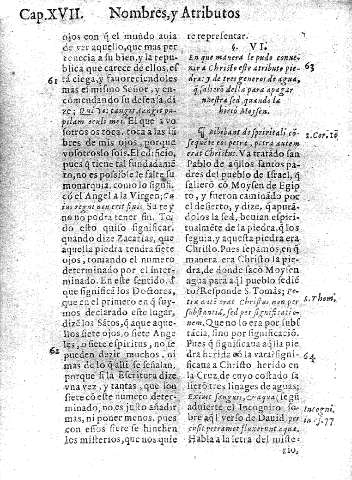 Cap.XVII. Nombres, y Atributos
ojos con q̃ el mundo auia
de ver aquello, que mas per
tenecia a su bien, y la repu
blica que carece de ellos, es
61
tà ciega, y fauoreciendoles
mas el mismo Señor, y en
comendando su defensa, di
ze: Qui vos tangit, tangit pu
pilam oculi mei. El que a vo
sotros os toca, toca a las lũ
bres de mis ojos, porque
vosotros lo sois. El edificio,
pues q̃ tiene tal fundamẽ
ro, no es possible le falte su
monarquia, como lo signifi
cò el Angel a la Virgen: Cu
ius regni non erit finis. Su rey
no no podra tener fin. To
do esto quiso significar,
quando dize Zacarias, que
aquella piedra tendra siete
ojos, tomando el numero
determinado por el inter
minado. En este sentido, se
que significã los Doctores,
que en el primero en q̃ suy
mos declarado este lugar,
dizẽ los Sãtos, q̃ aque aque
llos siete ojos, o siete Ange
62
les, o siete espiritus, no se
pueden dezir muchos, ni
mas de lo q̃ alli se señalan,
porque si la Escritura dize
vna vez, y tantas, que son
siete cõ este numero deter
minado, no es justo añadir
mas, ni poner menos, pues
con essos siete se hinchen
los misterios, que nos quie
re representar.
§. VI.
En que manera le pudo conue-
63
nir a Christo este atributo pie
dra: y de tres generos de agua,
q̃ saliero della para apagar
nuestra sed, quando la
hiriò Moysen.
¶ Bibebant de spiritali cõ
sequente eos petra, petra autem
1. Cor. 10
erat Christus. Va tratãdo san
Pablo de aq̃llos santos pa-
dres del pueblo de Israel, q̃
saliero cõ Moysen de Egip
to, y fueron caminãdo por
el desierto, y dize, q̃ apurã-
dolos la sed, beuian espiri-
tualmẽte de la piedra, q̃ los
seguia, y aquesta piedra era
Christo. Pues sepamos, en q̃
manera era Christo la pie-
dra, de donde sacò Moysen
agua para aq̃l pueblo sediẽ
to? Responde S. Tomàs: Pe
tra autẽ erat Christus, non per
S. Thom,
substantiã, sed per significatio-
nem. Que no lo era por subs
tácia, sino por significaciõ.
Pues q̃ significaua aq̃lla pie
64
dra herida cõ la vara? signifi
caua a Christo herido en
la Cruz, de cuyo costado sa
lierõ tres linages de aguas;
Exiuit sanguis, & aqua, (segũ
aduierte el Incognito so-
Incogni,
bre aq̃l verso de Dauid: per
in ps. 77
cussit petram & fluxerunt aquæ.
Habla a la letra del miste-
rio,